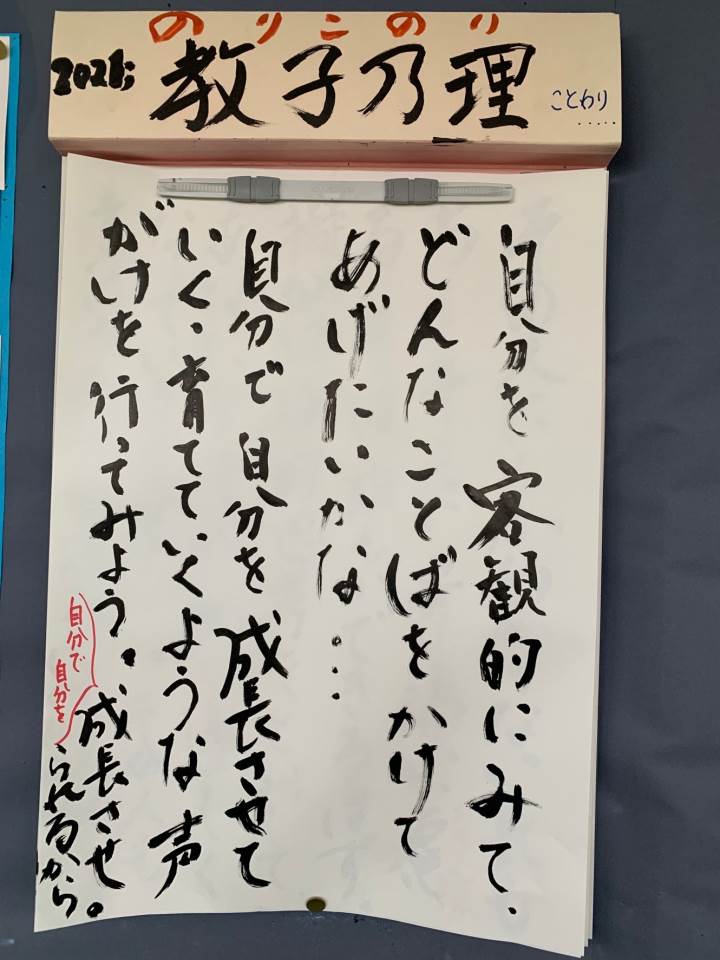 のりこのり
2021;
教子乃理
ことわり.....
自分を客観的にみて、
どんなことばをかけて
あげたいかな...
自分で自分を成長させて
いく・育てていくような声
がけを行ってみよう。成長させ
られるから。
自分で
自分を